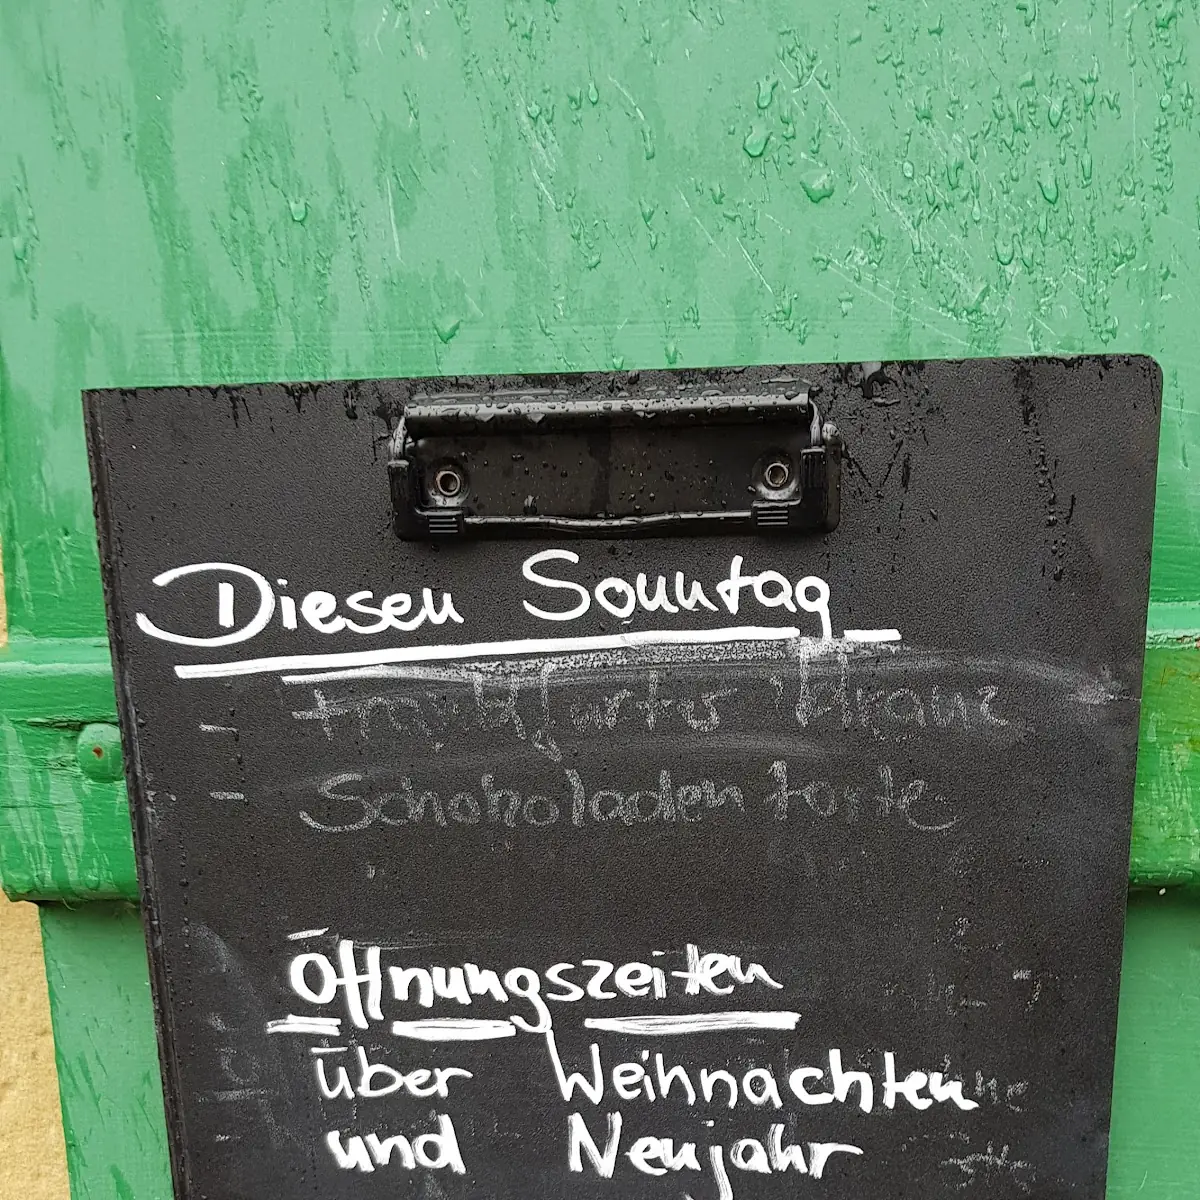 Diesen Sonntag
- Frankfurter Kranz
- Schokoladentorte
Öffnungszeiten
über Weihnachten
und Neujahr